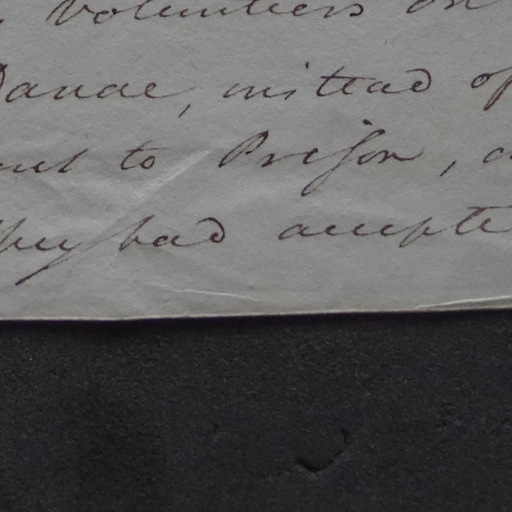 Volunteers on
Danae, instead of
sent to Prison, a
they had accepte